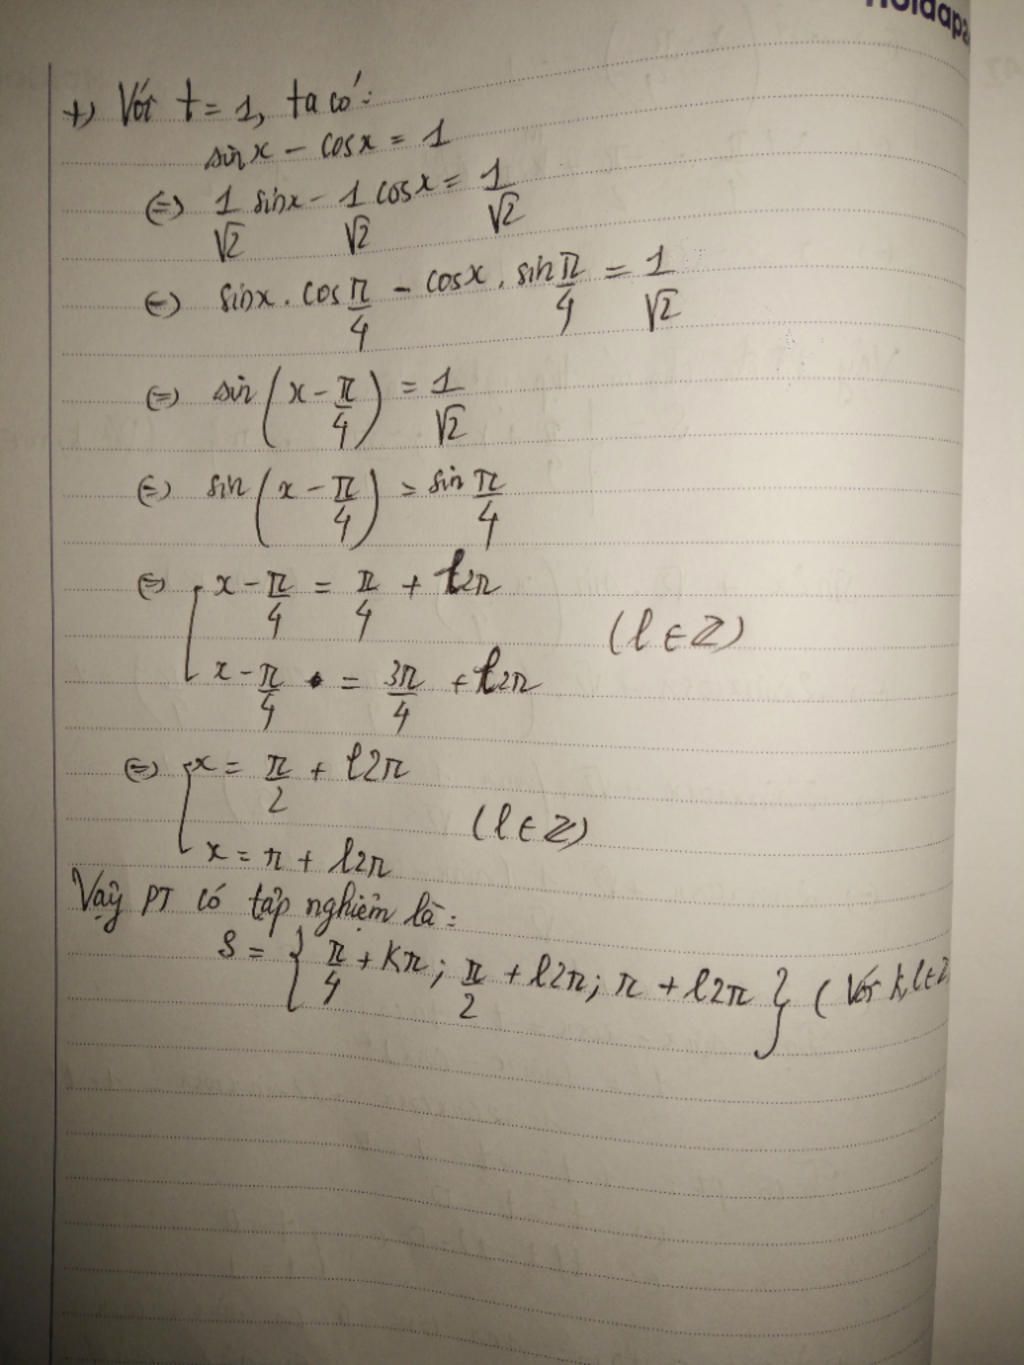 Hoidap2
+) Với t = 1, ta có:
sinx - cosx = 1
(=) 1/√2 sinx - 1/√2 cosx = 1/√2
(=) sinx . cos π/4 - cosx . sin π/4 = 1/√2
(=) sin(x - π/4) = 1/√2
(=) sin(x - π/4) = sin π/4
(=) [ x - π/4 = π/4 + l2π
(l ∈ ℤ)
x - π/4 = 3π/4 + l2π
(=) [ x = π/2 + l2π
(l ∈ ℤ)
x = π + l2π
Vậy PT có tập nghiệm là:
S = { π/4 + kπ; π/2 + l2π; π + l2π } (Với k, l ∈ ℤ